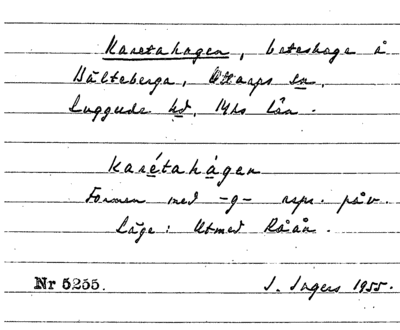 Karetahagen, beteshage å
Bälteberga, Ottarps sn,
Luggude hd, Mhs län.
karétahágen
Formen med -g- rspr. påv.
Läge: Utmed Råån.
Nr 5255. I. Ingers 1955.